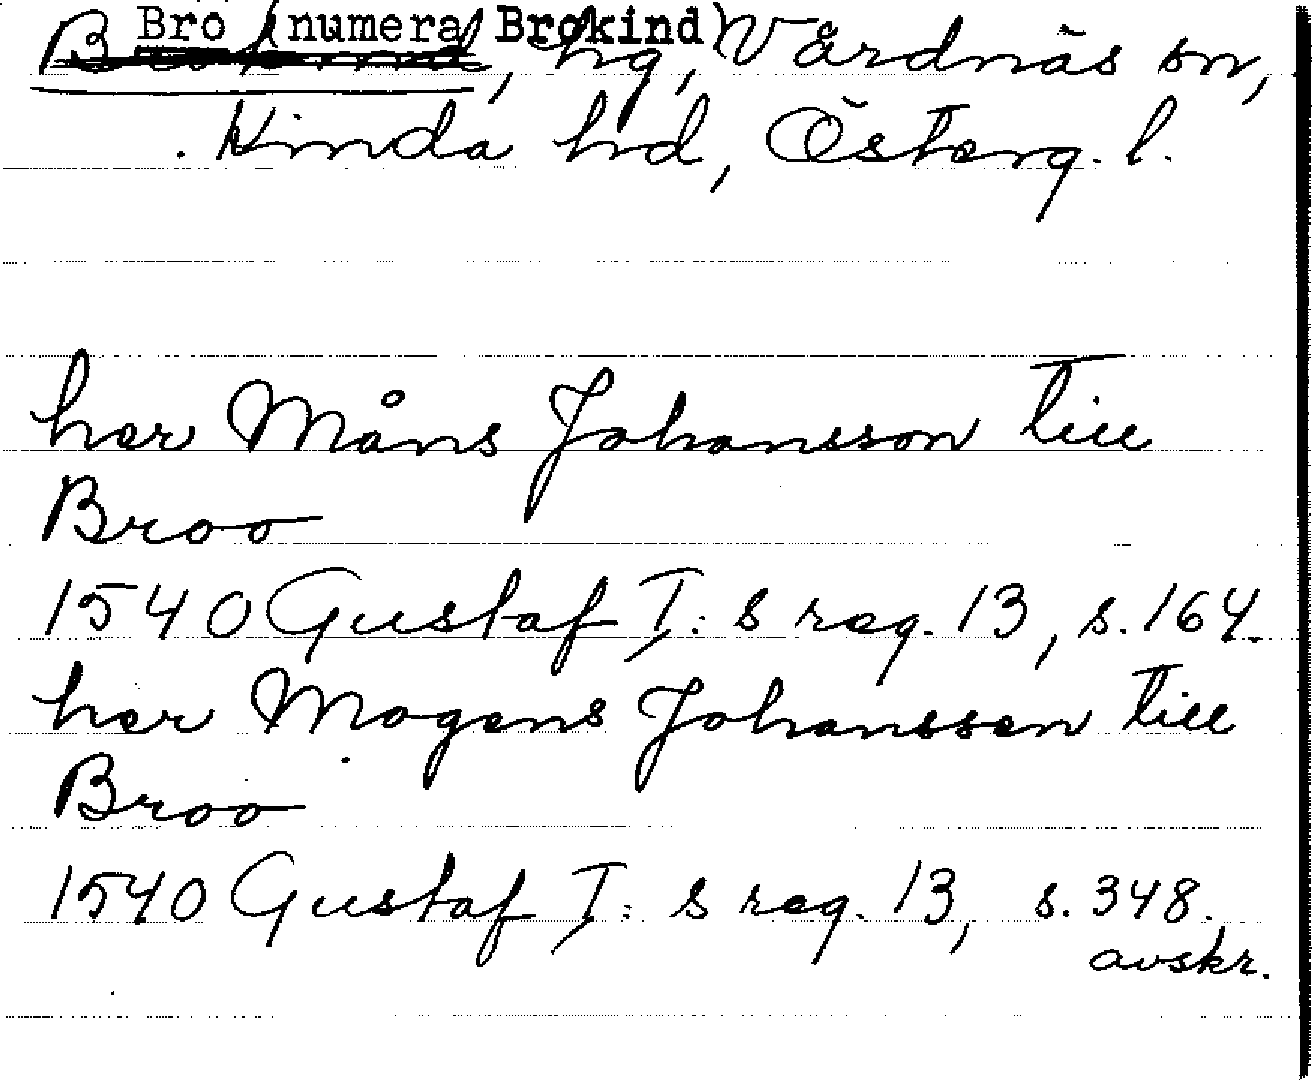 Bro (numera Brokind), hg, Vårdnäs sn,
Kinda hd, Österg. l.
her Måns Johansson till
Broo
1540 Gustaf I: s reg. 13, s. 164.
her Mogens Johanssen till
Broo
1540 Gustaf I: s reg. 13, s. 348.
avskr.